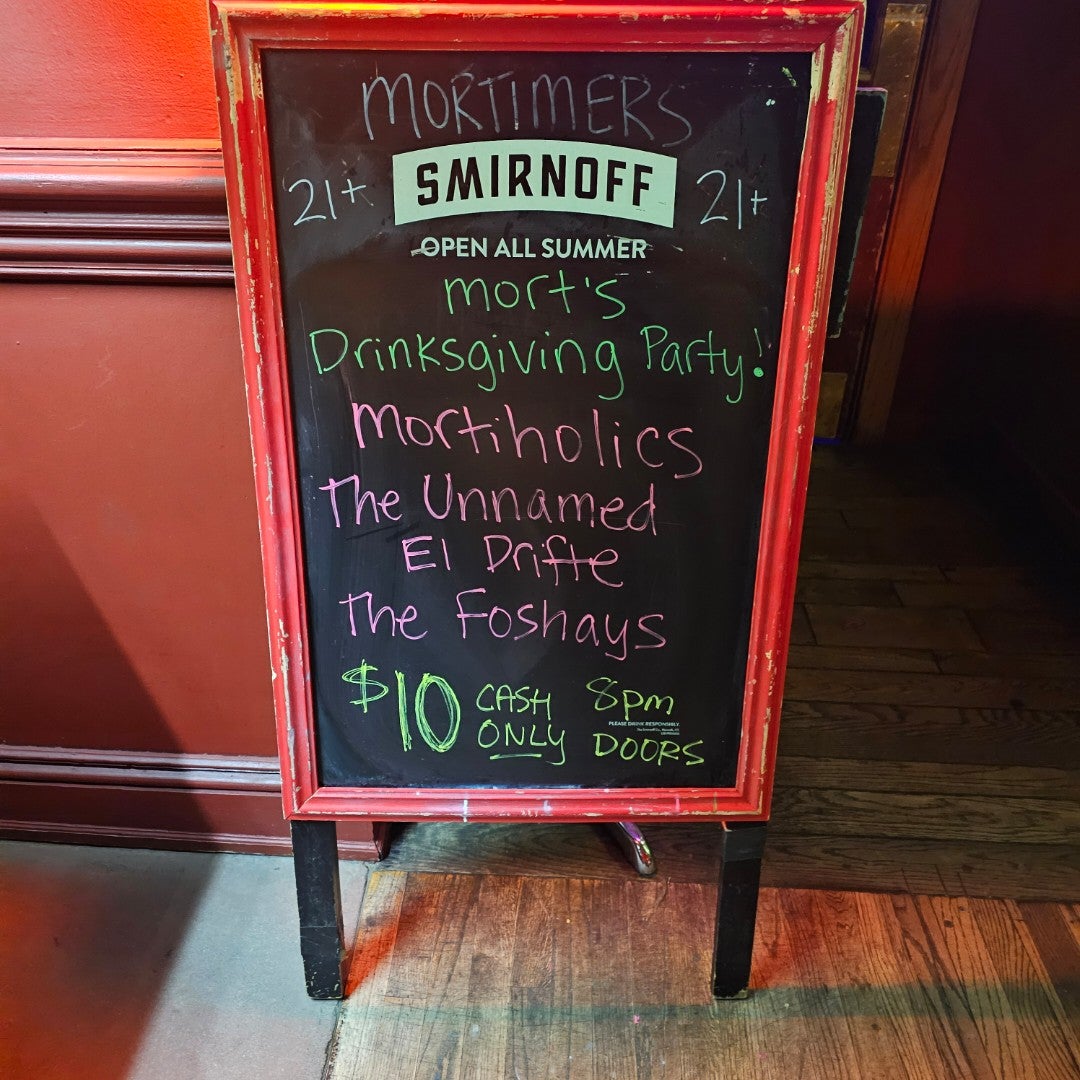 MORTIMERS
SMIRNOFF
21+ 21+
OPEN ALL SUMMER
mort's
Drinksgiving Party!
mortiholics
The Unnamed
El Drifte
The Foshays
$10 CASH ONLY
8pm
PLEASE DRINK RESPONSIBLY.
DOORS